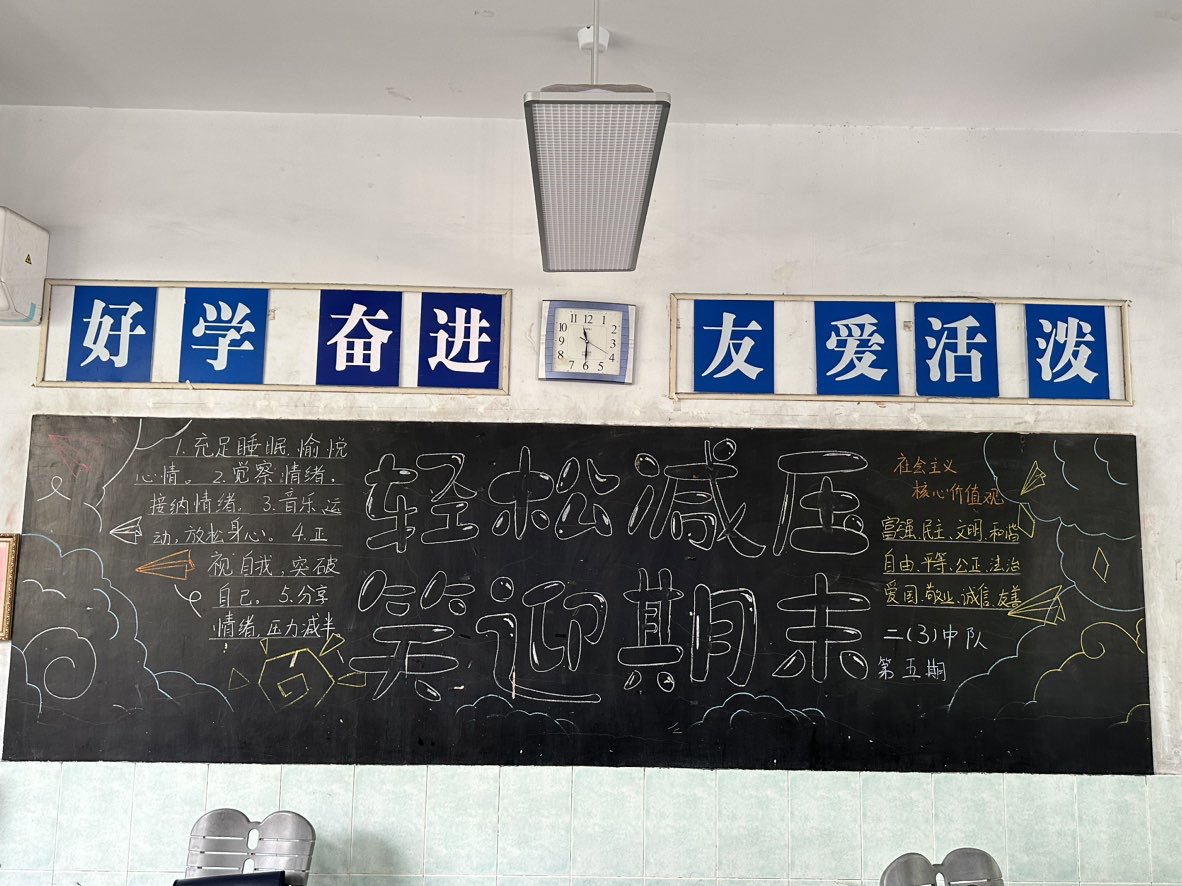 好学奋进
友爱活泼
11 12 1
10 2
9 3
8 4
7 6 5
1.充足睡眠,愉悦
心情。2.觉察情绪,
接纳情绪。3.音乐运
动,放松身心。4.正
视自我,突破
自己。5.分享
情绪,压力减半
!
轻松减压
笑迎期末
社会主义
核心价值观
富强、民主、文明、和谐
自由、平等、公正、法治
爱国、敬业、诚信、友善
二(3)中队
第五期